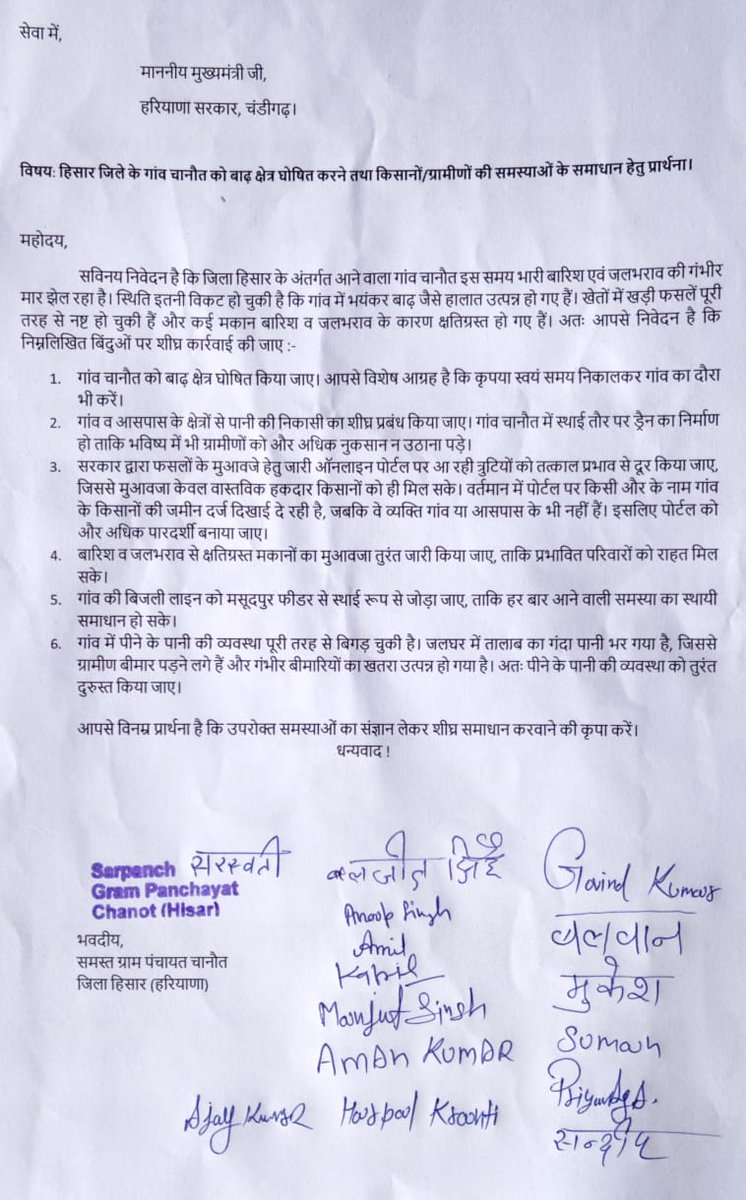 सेवा में,
माननीय मुख्यमंत्री जी,
हरियाणा सरकार, चंडीगढ़।
विषय: हिसार जिले के गांव चानौत को बाढ़ क्षेत्र घोषित करने तथा किसानों/ग्रामीणों की समस्याओं के समाधान हेतु प्रार्थना।
महोदय,
सविनय निवेदन है कि जिला हिसार के अंतर्गत आने वाला गांव चानौत इस समय भारी बारिश एवं जलभराव की गंभीर
मार झेल रहा है। स्थिति इतनी विकट हो चुकी है कि गांव में भयंकर बाढ़ जैसे हालात उत्पन्न हो गए हैं। खेतों में खड़ी फसलें पूरी
तरह से नष्ट हो चुकी हैं और कई मकान बारिश व जलभराव के कारण क्षतिग्रस्त हो गए हैं। अतः आपसे निवेदन है कि
निम्नलिखित बिंदुओं पर शीघ्र कार्रवाई की जाए :-
1. गांव चानौत को बाढ़ क्षेत्र घोषित किया जाए। आपसे विशेष आग्रह है कि कृपया स्वयं समय निकालकर गांव का दौरा
भी करें।
2. गांव व आसपास के क्षेत्रों से पानी की निकासी का शीघ्र प्रबंध किया जाए। गांव चानौत में स्थाई तौर पर ड्रैन का निर्माण
हो ताकि भविष्य में भी ग्रामीणों को और अधिक नुकसान न उठाना पड़े।
3. सरकार द्वारा फसलों के मुआवजे हेतु जारी ऑनलाइन पोर्टल पर आ रही त्रुटियों को तत्काल प्रभाव से दूर किया जाए,
जिससे मुआवजा केवल वास्तविक हकदार किसानों को ही मिल सके। वर्तमान में पोर्टल पर किसी और के नाम गांव
के किसानों की जमीन दर्ज दिखाई दे रही है, जबकि वे व्यक्ति गांव या आसपास के भी नहीं हैं। इसलिए पोर्टल को
और अधिक पारदर्शी बनाया जाए।
4. बारिश व जलभराव से क्षतिग्रस्त मकानों का मुआवजा तुरंत जारी किया जाए, ताकि प्रभावित परिवारों को राहत मिल
सके।
5. गांव की बिजली लाइन को मसूदपुर फीडर से स्थाई रूप से जोड़ा जाए, ताकि हर बार आने वाली समस्या का स्थायी
समाधान हो सके।
6. गांव में पीने के पानी की व्यवस्था पूरी तरह से बिगड़ चुकी है। जलघर में तालाब का गंदा पानी भर गया है, जिससे
ग्रामीण बीमार पड़ने लगे हैं और गंभीर बीमारियों का खतरा उत्पन्न हो गया है। अतः पीने के पानी की व्यवस्था को तुरंत
दुरुस्त किया जाए।
आपसे विनम्र प्रार्थना है कि उपरोक्त समस्याओं का संज्ञान लेकर शीघ्र समाधान करवाने की कृपा करें।
धन्यवाद !
Sarpanch सरस्वती
Gram Panchayat
Chanot (Hisar)
भवदीय,
समस्त ग्राम पंचायत चानौत
जिला हिसार (हरियाणा)
बलजीत सिंह
Anoop Singh
Amil
Kapil
Manjeet Singh
AMAN KUMAR
Ajay Kumar
Govind Kumar
बलवान
मुकेश
Suman
सन्दीप